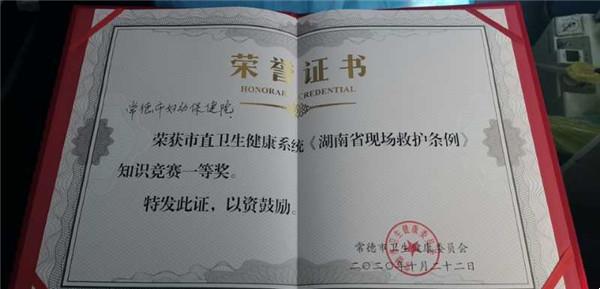 荣誉证书
HONORARY CREDENTIAL
常德市妇幼保健院
荣获市直卫生健康系统《湖南省现场救护条例》
知识竞赛一等奖。
特发此证，以资鼓励。
常德市卫生健康委员会
二〇二〇年十月二十二日